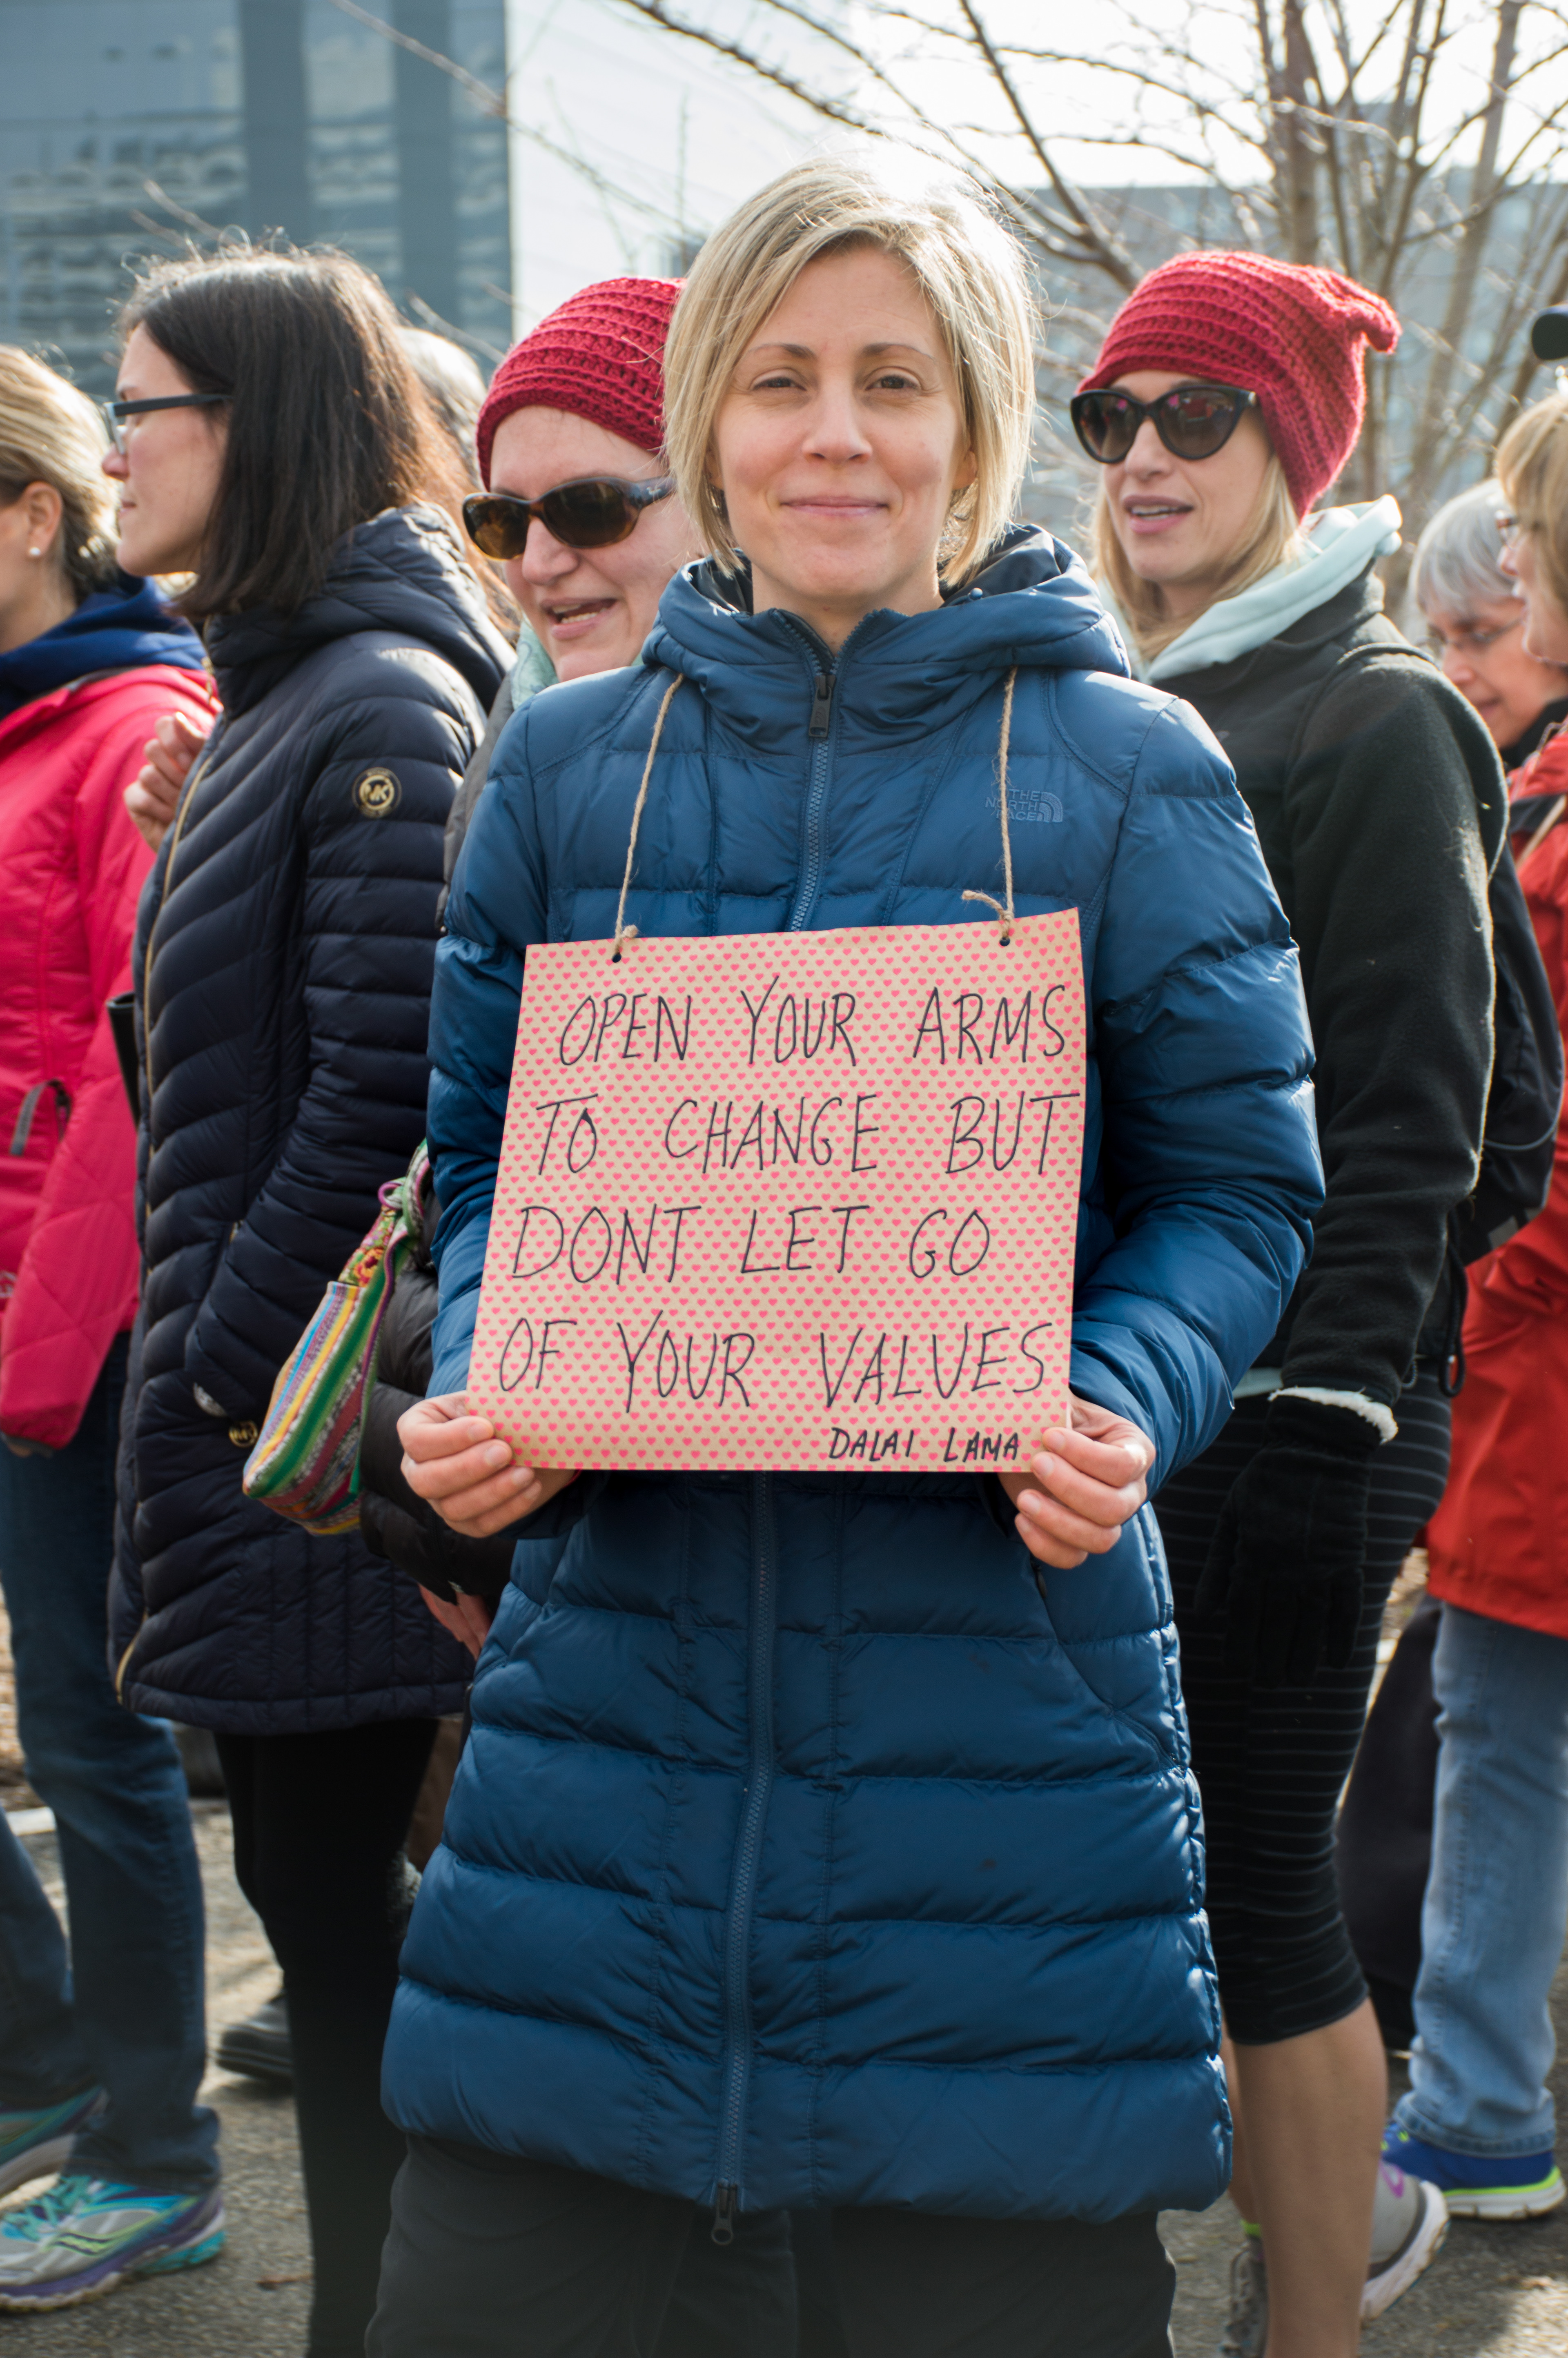 MK
THE
NORTH
FACE
OPEN YOUR ARMS
TO CHANGE BUT
DONT LET GO
OF YOUR VALUES
DALAI LAMA
MK